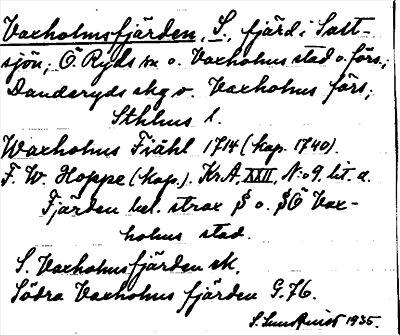 Vaxholmsfjärden, S., fjärd i Salt-
sjön; Ö. Ryds sn o. Vaxholms stad o. förs.;
Danderyds skg o. Vaxholms förs;
Sthlms l.
Waxholms Fiähl 1714 (kop. 1740).
F. W. Hoppe (kop.). KrA, XXII, N:o 9, lit. a.
Fjärden bel. strax S o. SÖ Vax-
holms stad.
S. Vaxholmsfjärden sk.
Södra Vaxholms fjärden G. 76.
1935.